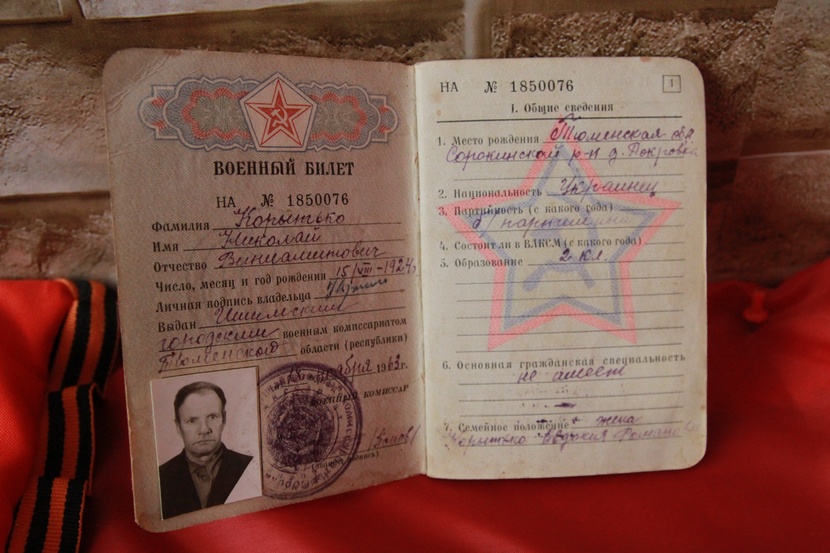 ВОЕННЫЙ БИЛЕТ
НА № 1850076
Фамилия Корытько
Имя Николай
Отчество Вениаминтович
Число, месяц и год рождения 15/VIII-1924г
Личная подпись владельца
Выдан Ишимским
городским военным комиссариатом
Тюменской области (республики)
1962г.
Военный комиссар
НА № 1850076
1
I. Общие сведения
1. Место рождения Тюменская обл
Сорокинский р-н д. Покровка
2. Национальность Украинец
3. Партийность (с какого года)
б/партейный
4. Состоял ли в ВЛКСМ (с какого года)
5. Образование 2 кл.
6. Основная гражданская специальность
не имеет
7. Семейное положение жена
Корытько Евдокия Романов